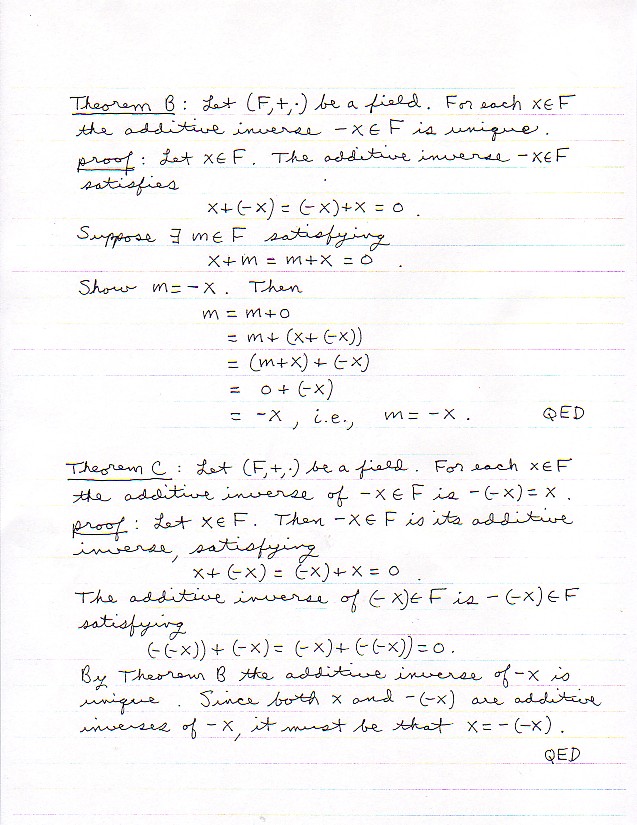 Theorem B: Let (F,+,·) be a field. For each x∈F
the additive inverse -x∈F is unique.
proof: Let x∈F. The additive inverse -x∈F
satisfies
x+(-x) = (-x)+x = 0.
Suppose ∃ m∈F satisfying
x+m = m+x = 0.
Show m=-x. Then
m = m+0
= m+(x+(-x))
= (m+x)+(-x)
= 0+(-x)
= -x, i.e., m=-x. QED
Theorem C: Let (F,+,·) be a field. For each x∈F
the additive inverse of -x∈F is -(-x)=x.
proof: Let x∈F. Then -x∈F is its additive
inverse, satisfying
x+(-x) = (-x)+x = 0.
The additive inverse of (-x)∈F is -(-x)∈F
satisfying
(-(-x))+(-x) = (-x)+(-(-x)) = 0.
By Theorem B the additive inverse of -x is
unique. Since both x and -(-x) are additive
inverses of -x, it must be that x=-(-x).
QED